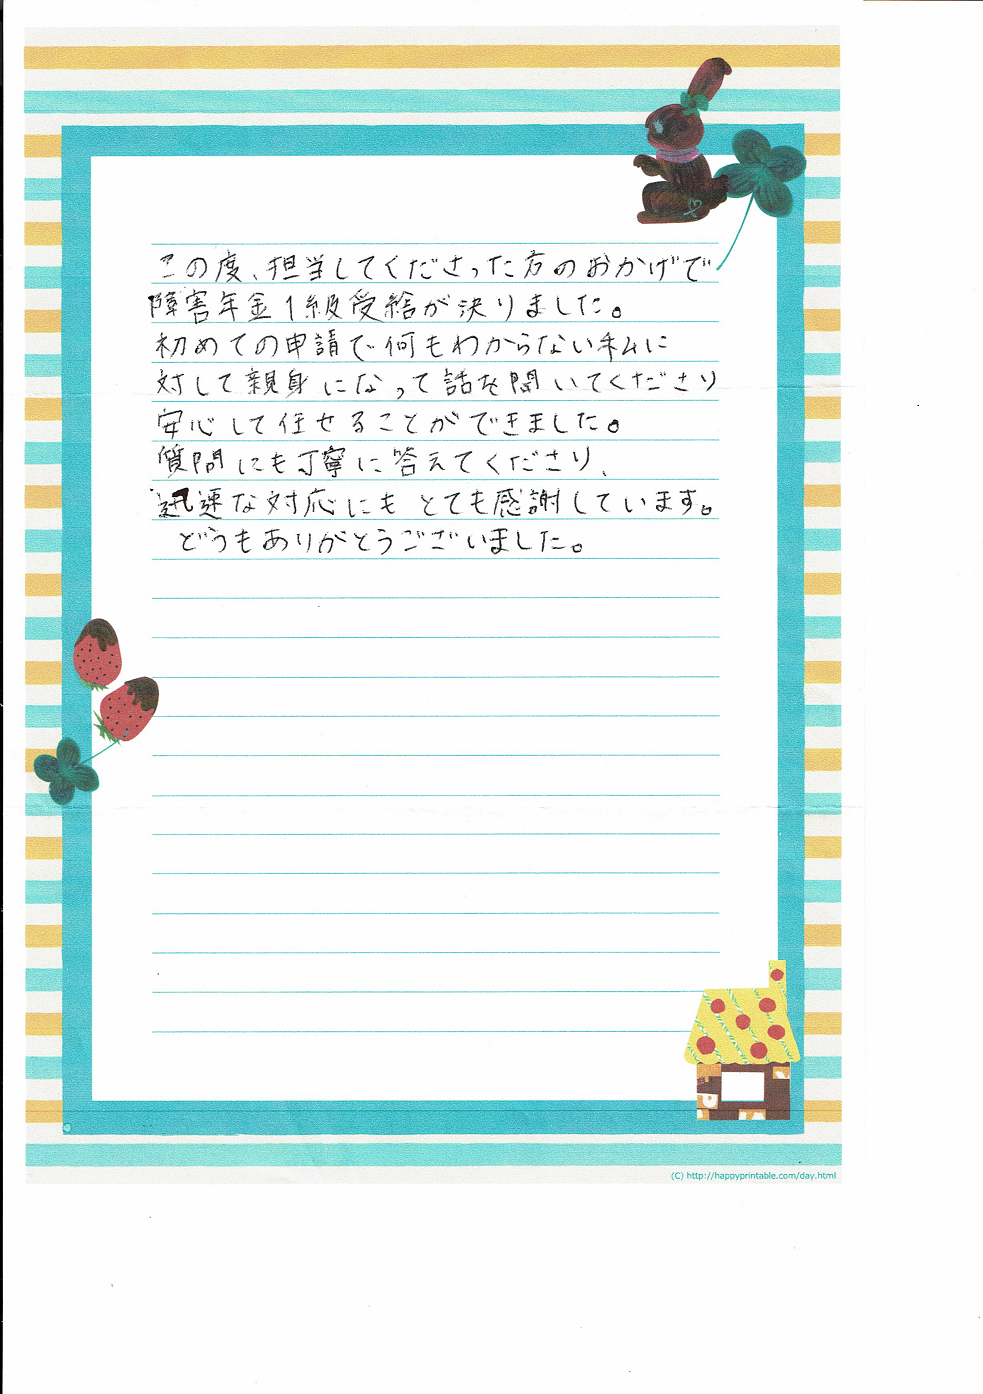 この度、担当してくださった方のおかげで
障害年金1級受給が決りました。
初めての申請で何もわからない私に
対して親身になって話を聞いてくださり
安心して任せることができました。
質問にも丁寧に答えてくださり、
迅速な対応にもとても感謝しています。
どうもありがとうございました。
(C) http://happyprintable.com/day.html